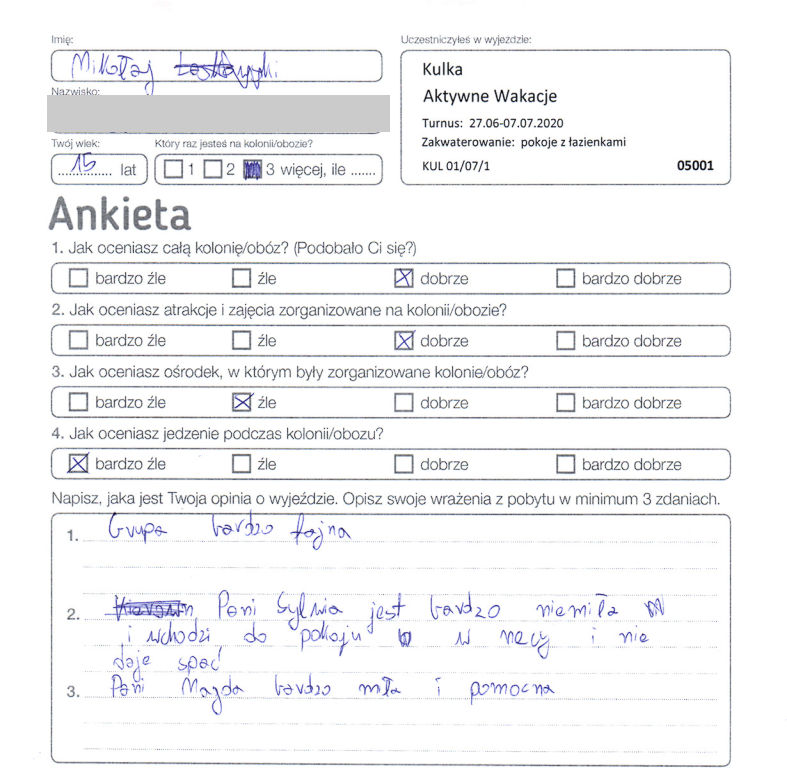 Imię:
Mikołaj
Nazwisko:
Twój wiek:
Który raz jesteś na kolonii/obozie?
15 lat
1 2 3 więcej, ile .......
Uczestniczyłeś w wyjeździe:
Kulka
Aktywne Wakacje
Turnus: 27.06-07.07.2020
Zakwaterowanie: pokoje z łazienkami
KUL 01/07/1 05001
Ankieta
1. Jak oceniasz całą kolonię/obóz? (Podobało Ci się?)
bardzo źle źle dobrze bardzo dobrze
2. Jak oceniasz atrakcje i zajęcia zorganizowane na kolonii/obozie?
bardzo źle źle dobrze bardzo dobrze
3. Jak oceniasz ośrodek, w którym były zorganizowane kolonie/obóz?
bardzo źle źle dobrze bardzo dobrze
4. Jak oceniasz jedzenie podczas kolonii/obozu?
bardzo źle źle dobrze bardzo dobrze
Napisz, jaka jest Twoja opinia o wyjeździe. Opisz swoje wrażenia z pobytu w minimum 3 zdaniach.
1. Grupa bardzo fajna
2. Pani Sylwia jest bardzo niemiła
i wchodzi do pokoju w nocy i nie
daje spać
3. Pani Magda bardzo miła i pomocna